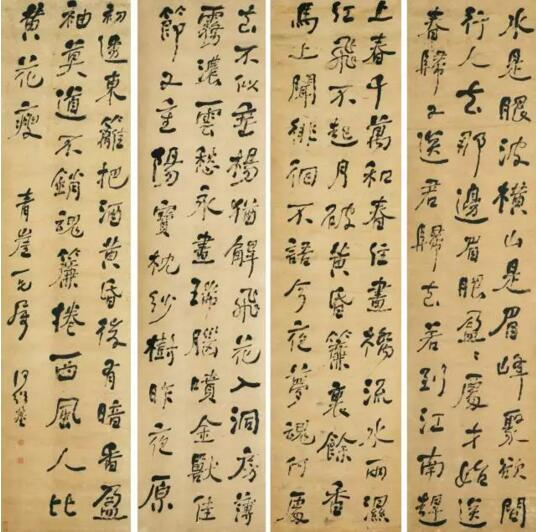 水是眼波橫山是眉峰聚欲問
行人去那邊眉眼盈盈處才始送
春歸又送君歸去若到江南趕
上春千萬和春住畫橋流水雨濕
紅飛不起月破黃昏簾裏餘香
馬上聞徘徊不語今夜夢魂何處
去不似垂楊猶解飛花入洞房薄
霧濃雲愁永晝瑞腦噴金獸佳
節又重陽寶枕紗昨夜
初透東籬把酒黃昏後有暗香盈
袖莫道不銷魂簾捲西風人比
黃花瘦 青崖兄屬 何紹基